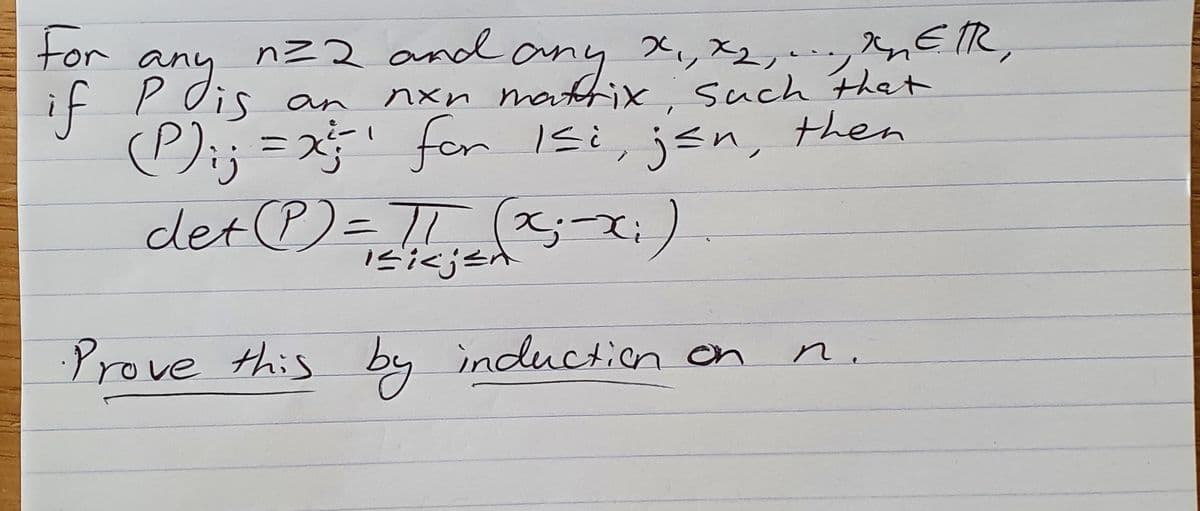 For any n≥2 and any x₁, x₂, ..., xₙ ∈ ℝ,
if P is an nxn matrix, such that
(P)ᵢⱼ = xⱼⁱ⁻¹ for 1≤i, j≤n, then
det(P) = ∏ (xⱼ-xᵢ).
1≤i<j≤n
Prove this by induction on n.